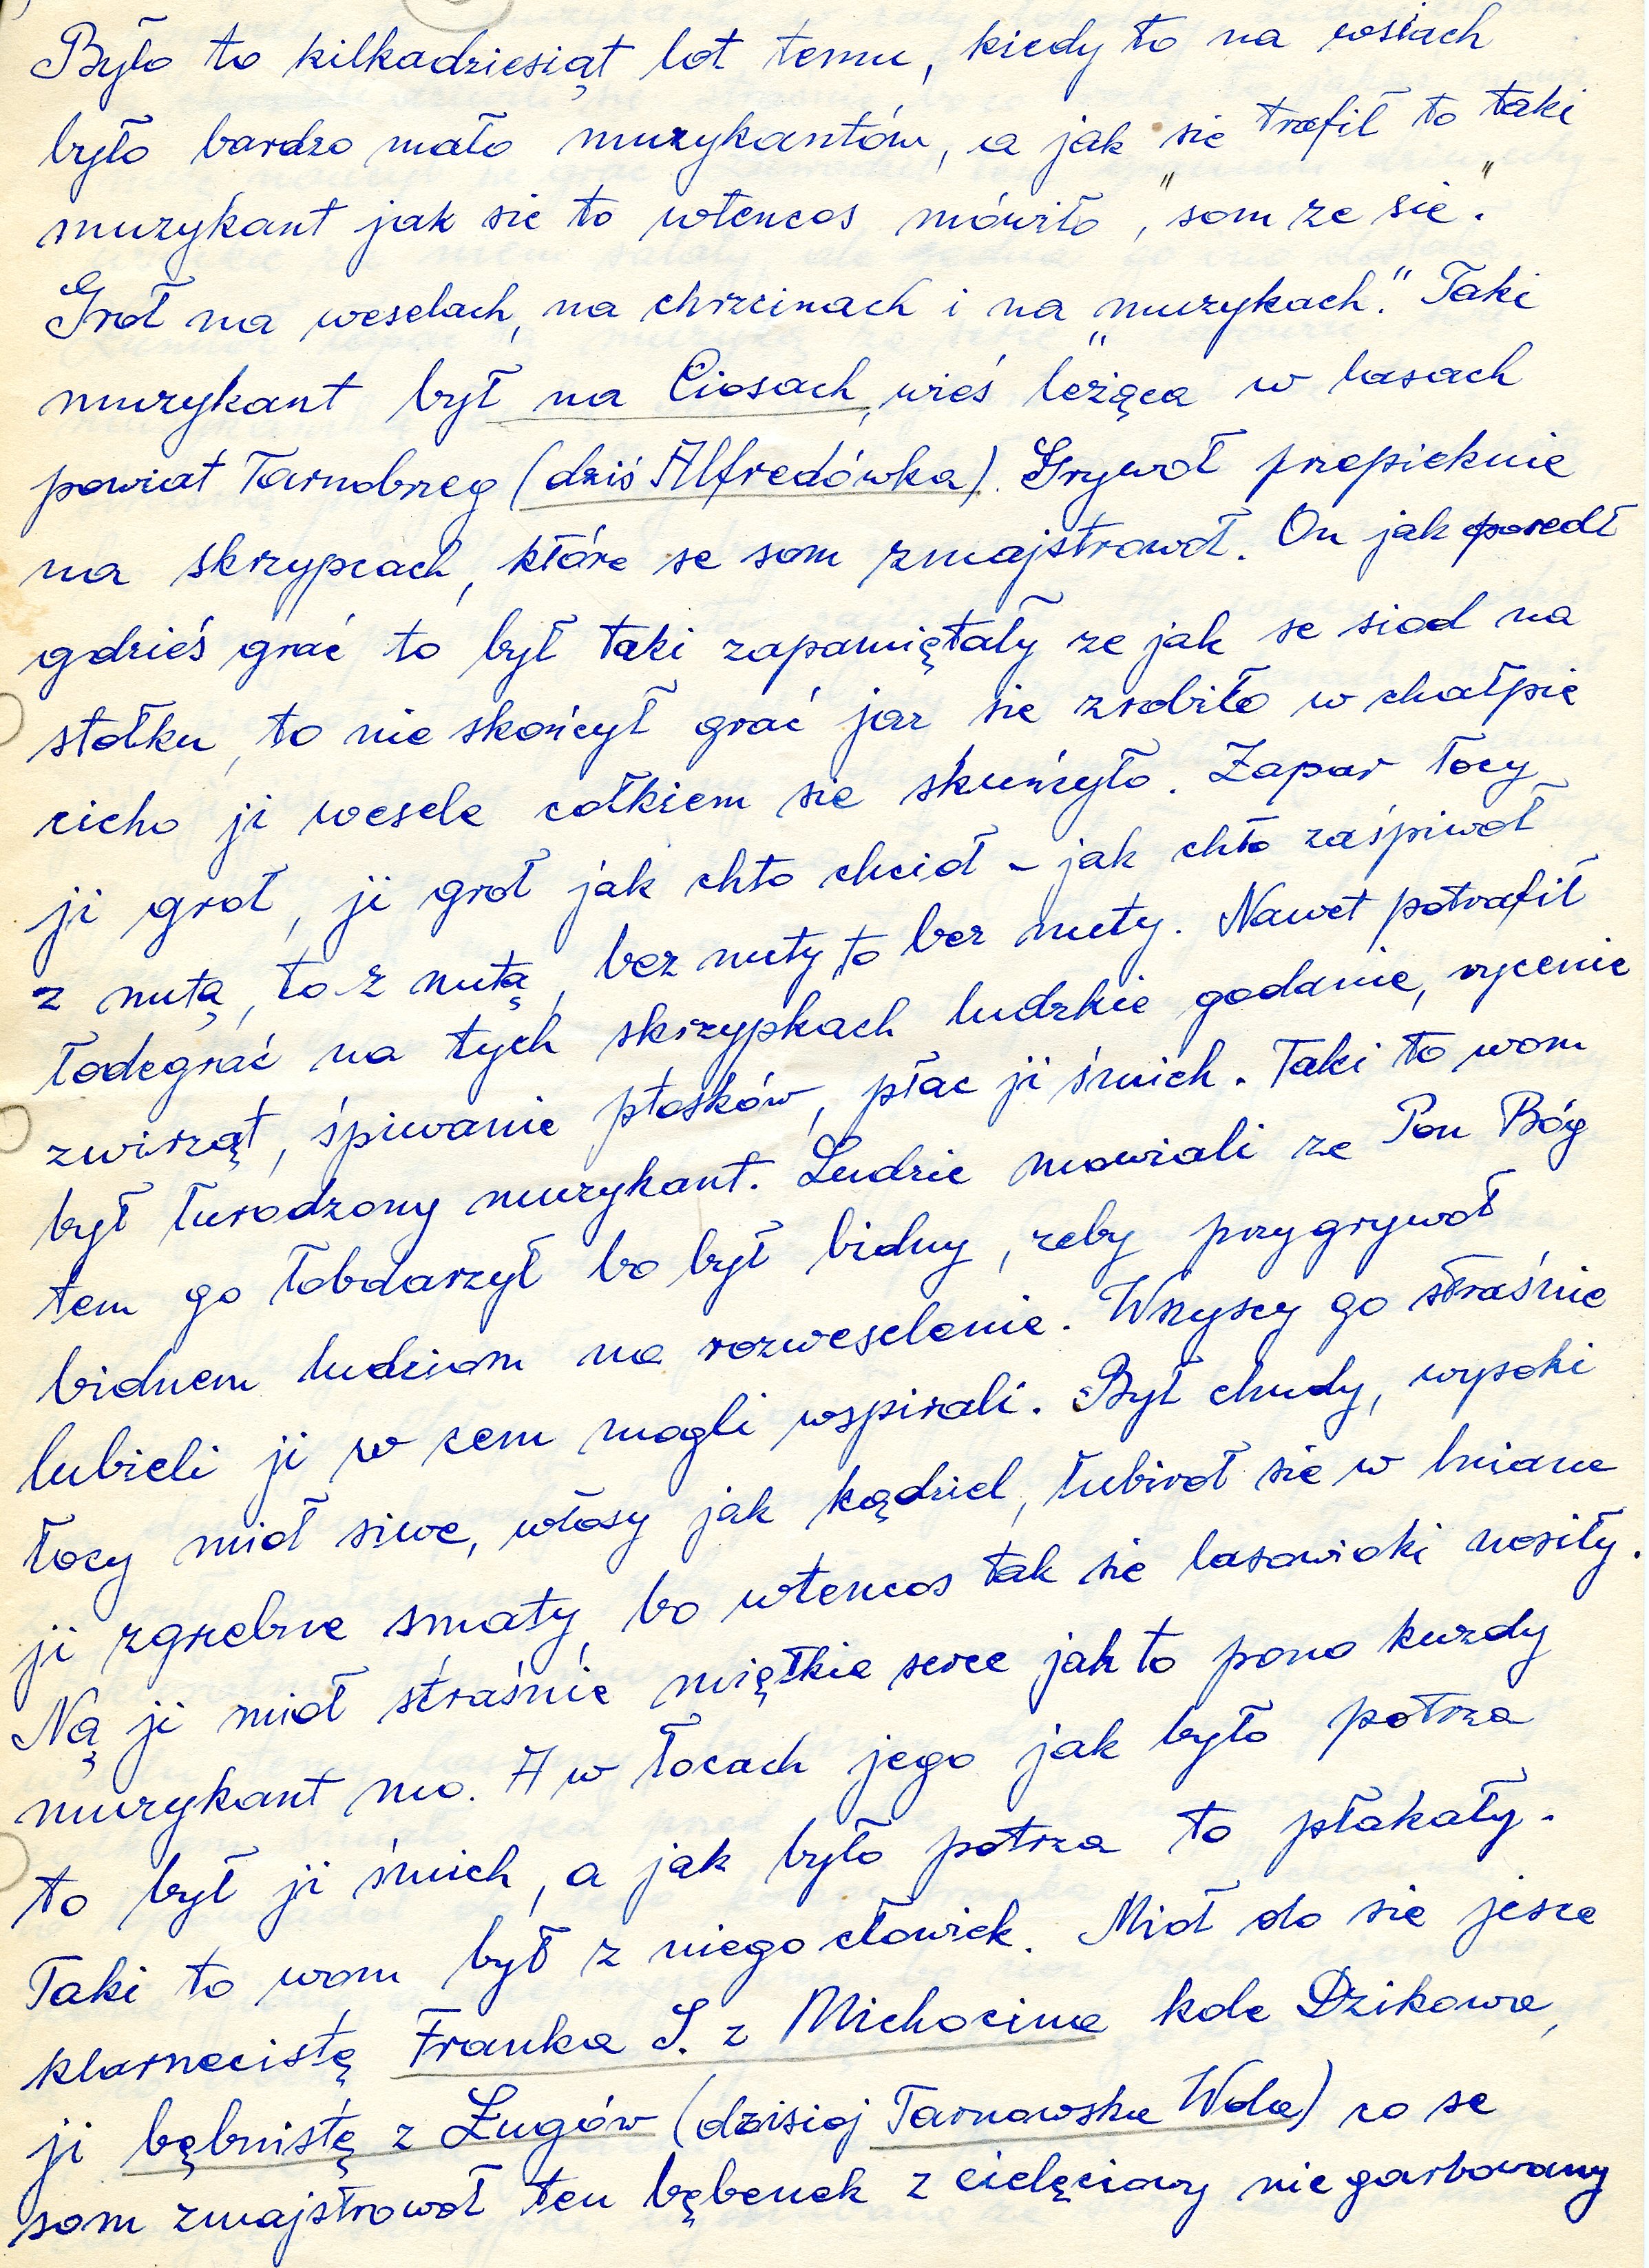 Było to kilkadziesiąt lot temu, kiedy to na wsiach
było bardzo mało muzykantów, a jak sie trafił to taki
muzykant jak sie to wtencos mówiło, "som ze sie".
Groł na weselach, na chrzcinach i na „muzykach." Taki
muzykant był na Ciosach, wieś leżąca w lasach
powiat Tarnobrzeg (dziś Alfredówka). Grywoł przepieknie
na skrzypcach, które se som zmajstrowoł. On jak posedł
gdzieś grać to był taki zapamiętały ze jak se siod na
stołku, to nie skońcył grać jaz sie zrobiło w chałpie
cicho ji wesele całkiem sie skuńcyło. Zapar łocy
ji groł, ji groł jak chto chcioł - jak chto zaśpiwoł
z nutą, to z nutą, bez nuty to bez nuty. Nawet potrafił
łodegrać na tych skrzypkach ludzkie godanie, rycenie
zwirząt, śpiwanie ptosków, płac ji śmich. Taki to wom
był łurodzony muzykant. Ludzie mowiali ze Pon Bóg
tem go łobdarzył bo był bidny, zeby przygrywoł
bidnem ludziom na rozweselenie. Wszyscy go straśnie
lubieli ji w cem mogli wspirali. Był chudy, wysoki
łocy mioł siwe, włosy jak kądziel, łubiroł sie w lniane
ji zgrzebne smaty, bo wtencos tak sie lasowioki nosiły.
Ną ji mioł straśnie miętkie serce jak to pono kuzdy
muzykant mo. A w łocach jego jak było potrza
to był ji śmich, a jak było potrza to płakały.
Taki to wom był z niego cłowiek. Mioł do sie jesce
klarnecistę Franka S. z Michocina kole Dzikowa,
ji bębnistę z Ługów (dzisioj Tarnowska Wola) co se
som zmajstrowoł ten bębenek z cielęciawy niegarbowany